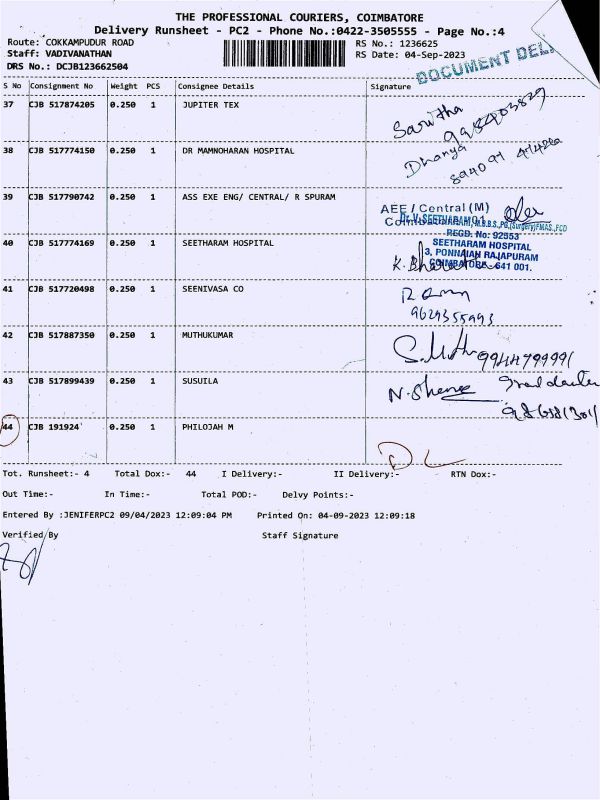 THE PROFESSIONAL COURIERS, COIMBATORE
Delivery Runsheet - PC2 - Phone No.:0422-3505555 - Page No.:4
Route: COKKAMPUDUR ROAD RS No.: 1236625
Staff: VADIVANATHAN RS Date: 04-Sep-2023
DRS No.: DCJB123662504
DOCUMENT DEL
S No Consignment No Weight PCS Consignee Details Signature
37 CJB 517874205 0.250 1 JUPITER TEX
Saritha
38 CJB 517774150 0.250 1 DR MAMNOHARAN HOSPITAL
Dhanya
39 CJB 517790742 0.250 1 ASS EXE ENG/ CENTRAL/ R SPURAM
AEE / Central (M)
Dr.V.SEETHARAM, M.B.B.S.,PG.(Surgery)FMAS.,FCD
REGD. No: 92553
40 CJB 517774169 0.250 1 SEETHARAM HOSPITAL
SEETHARAM HOSPITAL
3, PONNAIAH RAJAPURAM
COIMBATORE - 641 001.
K. Bharath
41 CJB 517720498 0.250 1 SEENIVASA CO
9629355993
42 CJB 517887350 0.250 1 MUTHUKUMAR
S.Muthu 9944799991
43 CJB 517899439 0.250 1 SUSUILA
44 CJB 191924 0.250 1 PHILOJAH M
DL
Tot. Runsheet:- 4 Total Dox:- 44 I Delivery:- II Delivery:- RTN Dox:-
Out Time:- In Time:- Total POD:- Delvy Points:-
Entered By :JENIFERPC2 09/04/2023 12:09:04 PM Printed On: 04-09-2023 12:09:18
Verified By Staff Signature